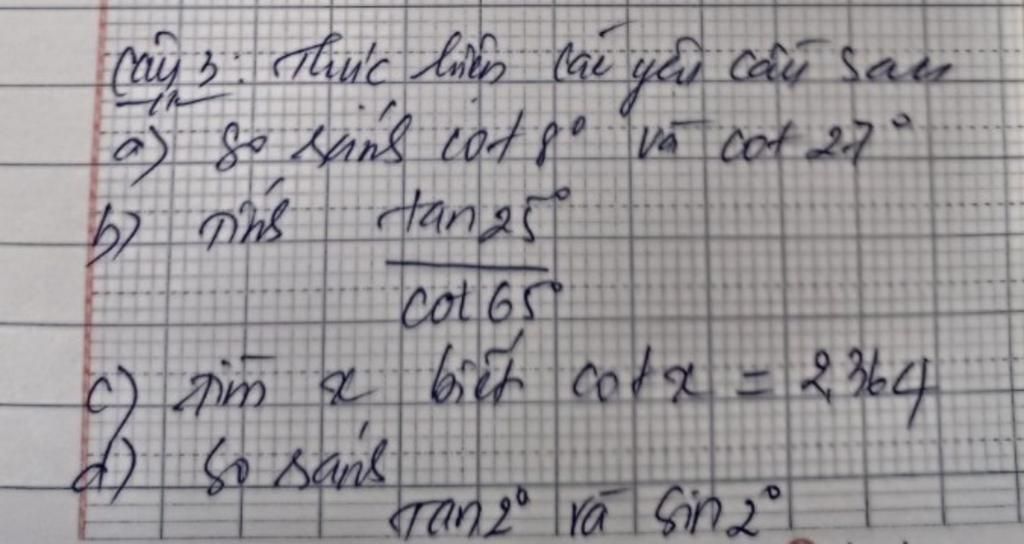 Câu 3: Thực hiện các yêu cầu sau
a) So sánh cot 8° và cot 27°
b) Tính tan 25° / cot 65°
c) Tìm x biết cot x = 2,364
d) So sánh
Tan 2° và Sin 2°